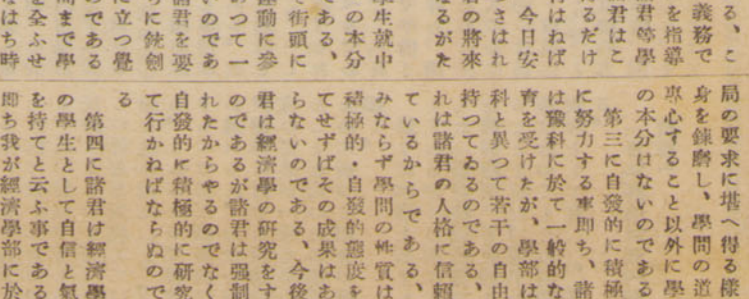 る、こ
義務で
を指導
君等學
君はこ
るだけ
はねば
今日安
さはれ
君の將來
なるがた
生就中
の本分
である、
て街頭に
運動に參
あつて一
いのであ
諸君を要
に銃劍
に立つ覺
のである
間まで學
を全ふせ
はち時
局の要求に堪へ得る樣
身を鍊磨し、學問の道
專心すること以外に學
の本分はないのである
第三に自發的に積極
に努力する事即ち、諸
は豫科に於て一般的な
育を受けたが、學部は
科と異つて若干の自由
持つてゐるのである、
れは諸君の人格に信賴
ているからである、
みならず學問の性質は
積極的・自發的態度を
てせずばその成果はあ
らないのである、今後
君は經濟學の研究をす
のであるが諸君は强制
れたからやるのでなく
自發的に積極的に研究
て行かねばならぬので
る
第四に諸君は經濟學
の學生として自信と氣
を持てと云ふ事である
即ち我が經濟學部に於